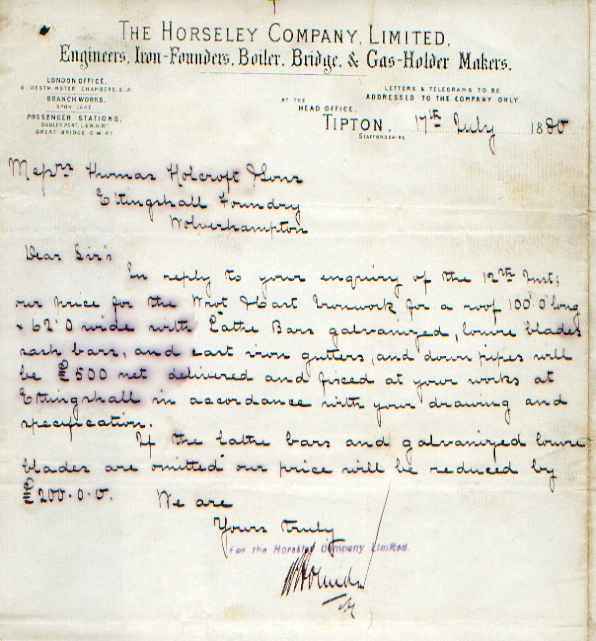 THE HORSELEY COMPANY, LIMITED,
Engineers, Iron-Founders, Boiler, Bridge, & Gas-Holder Makers.
LONDON OFFICE,
6, WESTMINSTER CHAMBERS, S.W
BRANCH WORKS,
SPON LANE
PASSENGER STATIONS,
DUDLEY PORT, L.& N.W.RY
GREAT BRIDGE, G.W.RY
LETTERS & TELEGRAMS TO BE
ADDRESSED TO THE COMPANY ONLY.
AT THE
HEAD OFFICE,
TIPTON, 17th July 1880
STAFFORDSHIRE.
Messrs Thomas Holcroft & Sons
Ettingshall Foundry
Wolverhampton
Dear Sir's
In reply to your enquiry of the 12th Inst:
our price for the Wrot & Cast Ironwork for a roof 100'0 long
× 62'0 wide with Latte Bars galvanized, louvre blades
sash bars, and cast iron gutters, and down pipes will
be £500 net delivered and fixed at your works at
Ettingshall in accordance with your drawing and
specification.
If the Latte bars and galvanized louvre
blades are omitted our price will be reduced by
£200.0.0. We are
Yours truly
For the Horseley Company Limited.